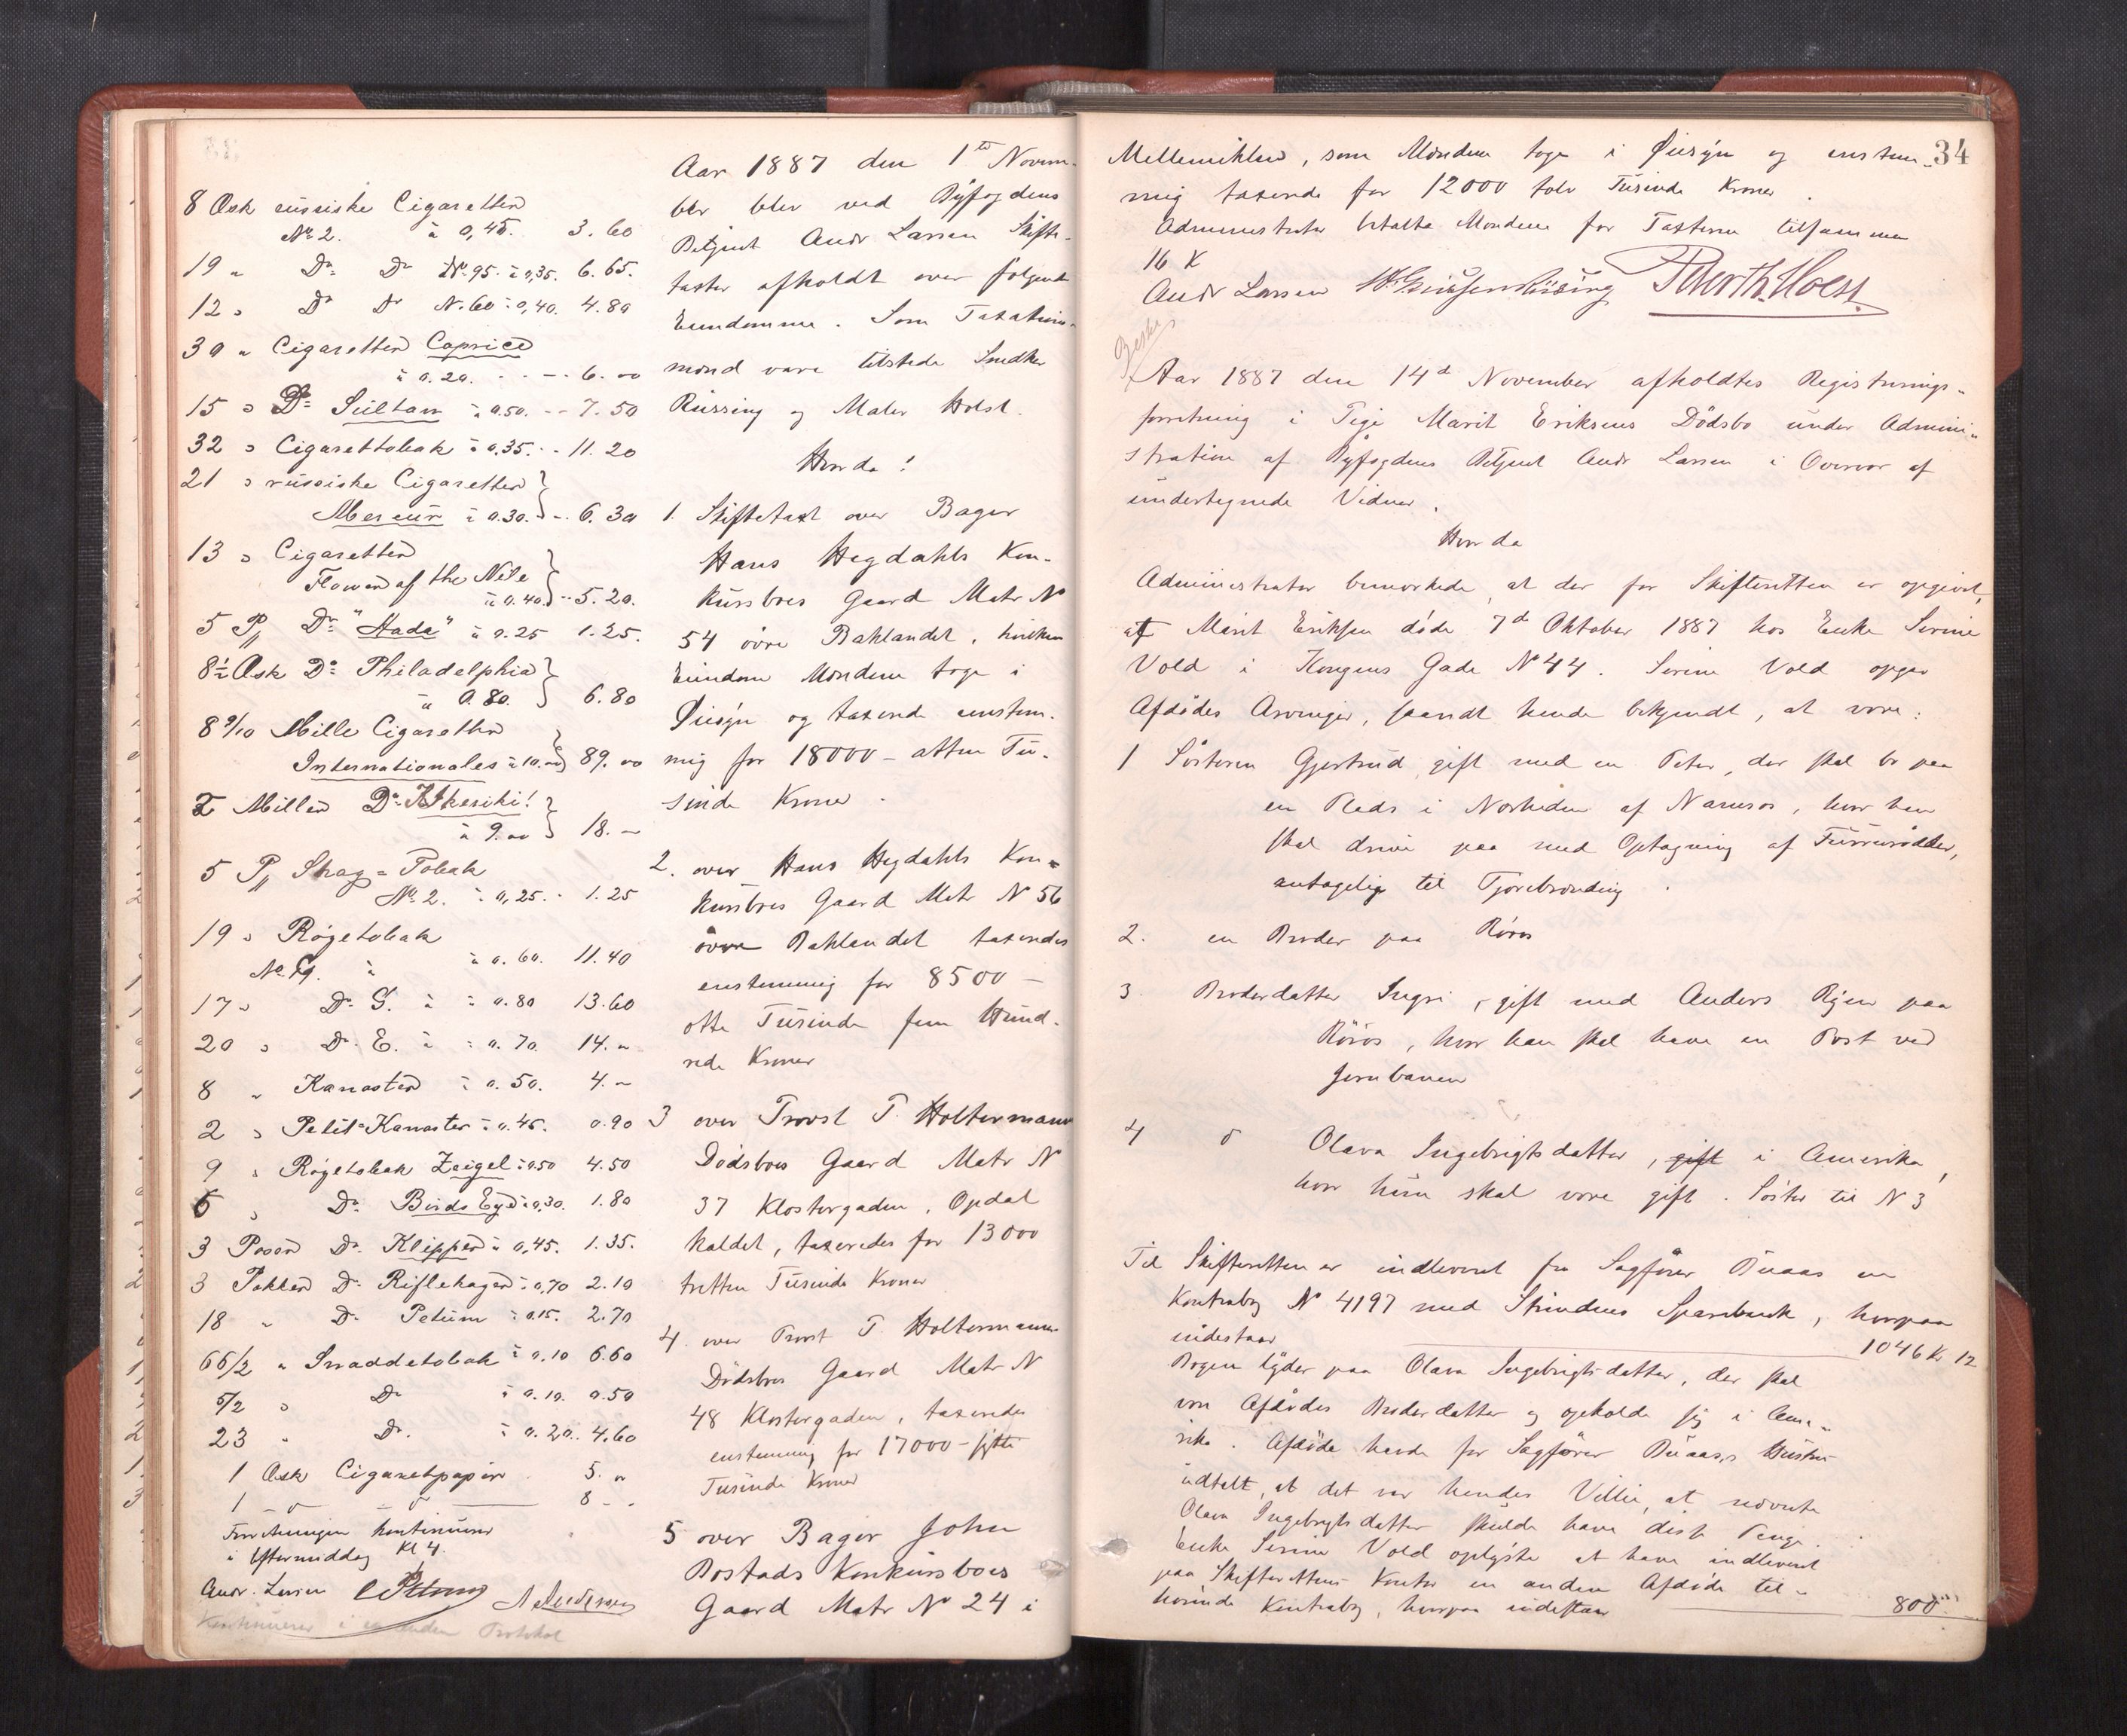 8 Ask russiske Cigaretter
No 2. à 0,45. 3.60
19 " Do Do No 95. à 0,35. 6.65.
12 " Do Do No. 60 à 0,40. 4.80
30 " Cigaretter Caprice
à 0.20. - - - 6. 00
15 " Do Sultan à 0.50. - - 7.50
32 " Cigarettobak à 0,35. - - 11.20
21 " russiske Cigaretter
Mercur à 0.30. - - 6.30
13 " Cigaretter
Flower of the Nile
à 0.40. - - 5.20.
5 Do "Hada" à 0.25 1.25.
8½ Ask Do Philadelphia
à 0.80. 6.80
8 9/10 Mille Cigaretter
Internationales à 10.00 89.00
2 Miller Do
à 9.00 18. -
5 Shag-Tobak
No 2. à 0,25. - 1.25
19 " Røgetobak
No à 0.60. 11.40
17 " Do G. à à 0.80 13.60
20 " Do E. à à 0.70. 14. "
8 " Kanaster à 0.50. 4. -
2 " Petit-Kanaster à 0.45. 0.90
9 " Røgetobak Zeigel à 0.50 4.50
6 " Do Birds Eye à 0,30. 1.80
3 Poser Do Klipper à 0,45. 1.35.
3 Pakker Do Riflekager à 0,70 2.10
18 " Do Petum à 0.15. 2.70
66/2 " Snaddetobak à 0.10 6.60
5/2 " Do à 0.10. 0.50
23 " Do à 0.20. 4.60
1 Ask Cigaretpapir 5. "
1 - d - d - 8 - -
Forretningen kontinuerer
i Eftermiddag Kl 4.
Andr. Larsen
Kontinuerer i en anden Protokol
Aar 1887 den 1te Novem-
ber blev ved Byfogdens
Betjent Andr Larsen Skifte-
taxter afholdt over følgende
Eiendomme. Som Taxations-
mænd vare tilstede Snedker
Rüssing og Maler Holst.
Hvorda!
1. Skiftetaxt over Bager
Hans Hegdahls Kon-
kursboes Gaard Matr No
54 øvre Baklandet, hvilken
Eiendom Mændene toge i
Øiesyn og taxerede enstem-
mig for 18000 - atten Tu-
sinde Kroner.
2. over Hans Hegdahls Kon-
kursboes Gaard Matr No 56
øvre Baklandet taxeredes
enstemmig for 8500 -
otte Tusinde fem Hund-
rede Kroner
3 over Provst T. Holtermanns
Dødsboes Gaard Matr No
37 Klostergaden, Opdal
kaldet, taxeredes for 13000
tretten Tusinde Kroner
4. over Provst T. Holtermanns
Dødsboes Gaard Matr No
48 Klostergaden, taxeredes
enstemmig for 17000 - sytten
Tusinde Kroner
5 over Bager John
Bostads Konkursboes
Gaard Matr No 24 i
34
Mellemiklen, som Mændene toge i Øiesyn og enstem-
mig taxerede for 12000 tolv Tusinde Kroner.
Administrator betalte Mændene for Taxterne tilsammen
16 K
Andr Larsen
Aar 1887 den 14d November afholdtes Registrerings-
forretning i Pige Marit Eriksens Dødsbo under Admini-
stration af Byfogdens Betjent Andr Larsen i Overvær af
undertegnede Vidner.
Hvorda
Administrator bemærkede, at der for Skifteretten er opgivet,
at Marit Eriksen døde 7d Oktober 1887 hos Enke Serine
Vold i Kongens Gade No 44. Serine Vold opgav
Afdødes Arvinger, saavidt hende bekjendt, at være:
1 Søsteren Gjertrud gift med en Peter, der skal bo paa
en Plads i Nærheden af Namsos, hvor han
skal drive paa med Optagning af Fururødder,
antagelig til Tjærebrænding.
2. en Broder paa Røros
3 Broderdatter Ingri, gift med Anders Ryen paa
Røros, hvor han skal have en Post ved
Jernbanen
4 d Olava Ingebrigtsdatter, gift i Amerika,
hvor hun skal være gift. Søster til No 3
Til Skifteretten er indleveret fra Sagfører Buaas en
Kontrabog No 4197 med Strindens Sparebank, hvorpaa
indestaar 1046 Kr 12
Bogen lyder paa Olava Ingebrigtsdatter, der skal
være Afdødes Broderdatter og opholde sig i Ame-
rika. Afdøde havde for Sagfører Buaas's Hustru
udtalt, at det var hendes Villie, at nævnte
Olava Ingebrigtsdatter skulde have disse Penge.
Enke Serine Vold oplyste at have indleveret
paa Skifterettens Kontor en anden Afdøde til-
hørende Kontrabog, hvorpaa indestaar 800